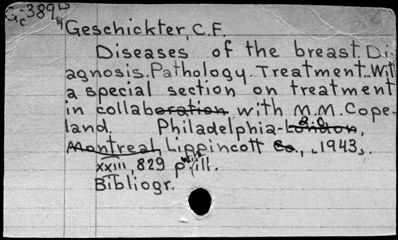 G-389
Geschickter, C.F.
Diseases of the breast. Di-
agnosis. Pathology. Treatment. Wit
a special section on treatment
in collaboration with M.M. Cope-
land. Philadelphia-London,
Montreal, Lippincott Co., 1943.
xxiii, 829 p. ill.
Bibliogr.